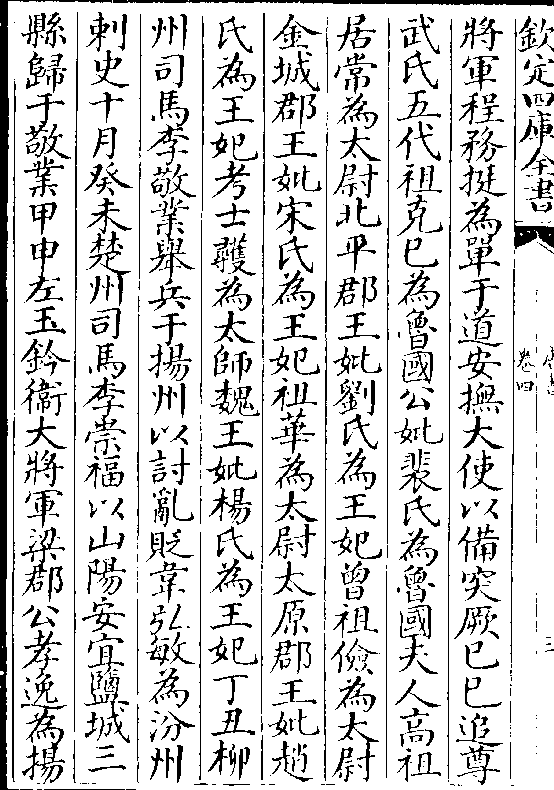 欽定四庫全書
卷四
三
將軍程務挺為單于道安撫大使以備突厥巳巳追尊
武氏五代祖克巳為魯國公妣裴氏為魯國夫人高祖
居常為太尉北平郡王妣劉氏為王妃曾祖儉為太尉
金城郡王妣宋氏為王妃祖華為太尉太原郡王妣趙
氏為王妃考士彠為太師魏王妣楊氏為王妃丁丑柳
州司馬李敬業舉兵于揚州以討亂貶韋弘敏為汾州
刺史十月癸未楚州司馬李崇福以山陽安宜鹽城三
縣歸于敬業甲申左玉鈐衞大將軍梁郡公孝逸為揚